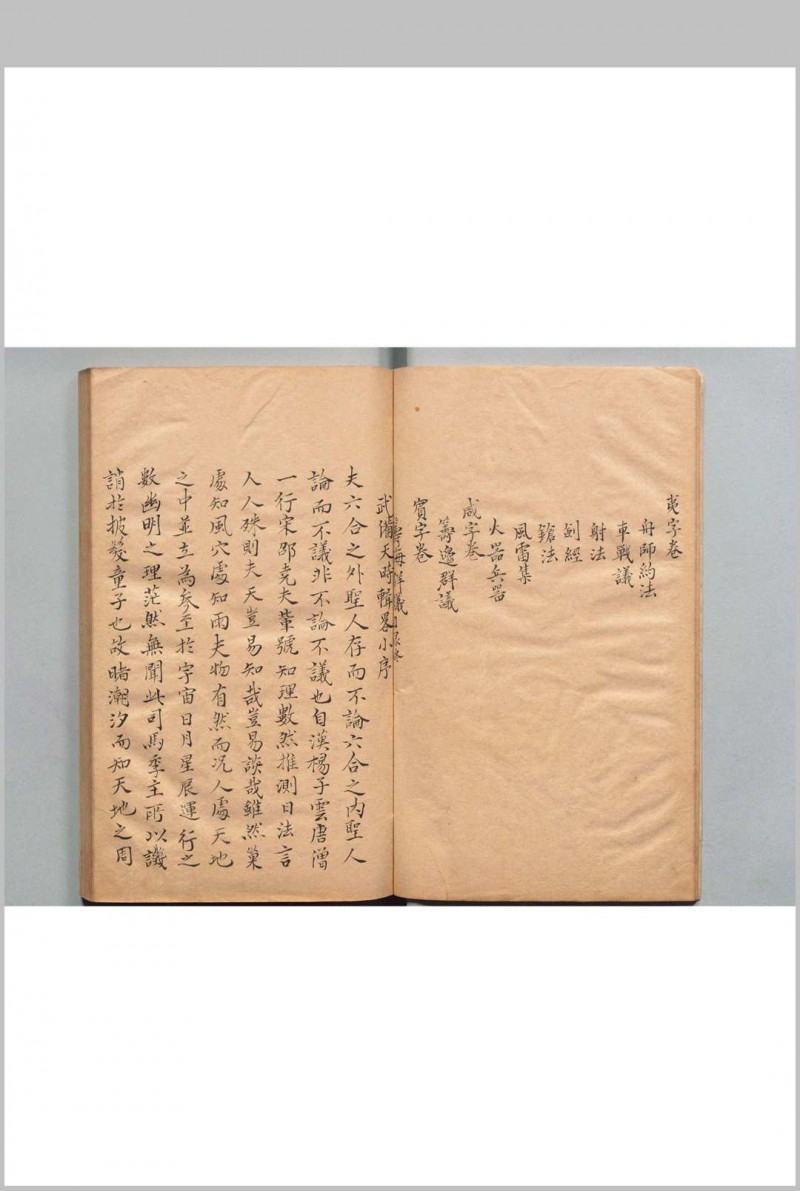 夷字卷
舟師約法
車戰議
射法
劍經
鎗法
風雷集
火器兵器
咸字卷
籌邊群議
賓字卷
籌海群議
武備天時輯畧小序
夫六合之外聖人存而不論六合之內聖人
論而不議非不論不議也自漢楊子雲唐僧
一行宋邵堯夫輩號知理數然推測日法言
人人殊則夫天豈易知哉豈易談哉雖然巢
處知風穴處知雨夫物有然而况人處天地
之中並立為參至於宇宙日月星辰運行之
數幽明之理茫然無聞此司馬季主所以譏
誚於披髮童子也故睹潮汐而知天地之周